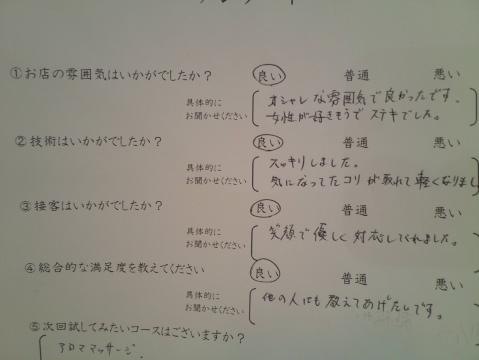 アンケート
①お店の雰囲気はいかがでしたか？ 良い 普通 悪い
具体的に オシャレな雰囲気で良かったです。
お聞かせください 女性が好きそうでステキでした。
②技術はいかがでしたか？ 良い 普通 悪い
具体的に スッキリしました。
お聞かせください 気になってたコリが取れて軽くなりまし
③接客はいかがでしたか？ 良い 普通 悪い
具体的に
お聞かせください 笑顔で優しく対応してくれました。
④総合的な満足度を教えてください 良い 普通 悪い
具体的に
お聞かせください 他の人にも教えてあげたいです。
⑤次回試してみたいコースはございますか？
アロママッサージ.